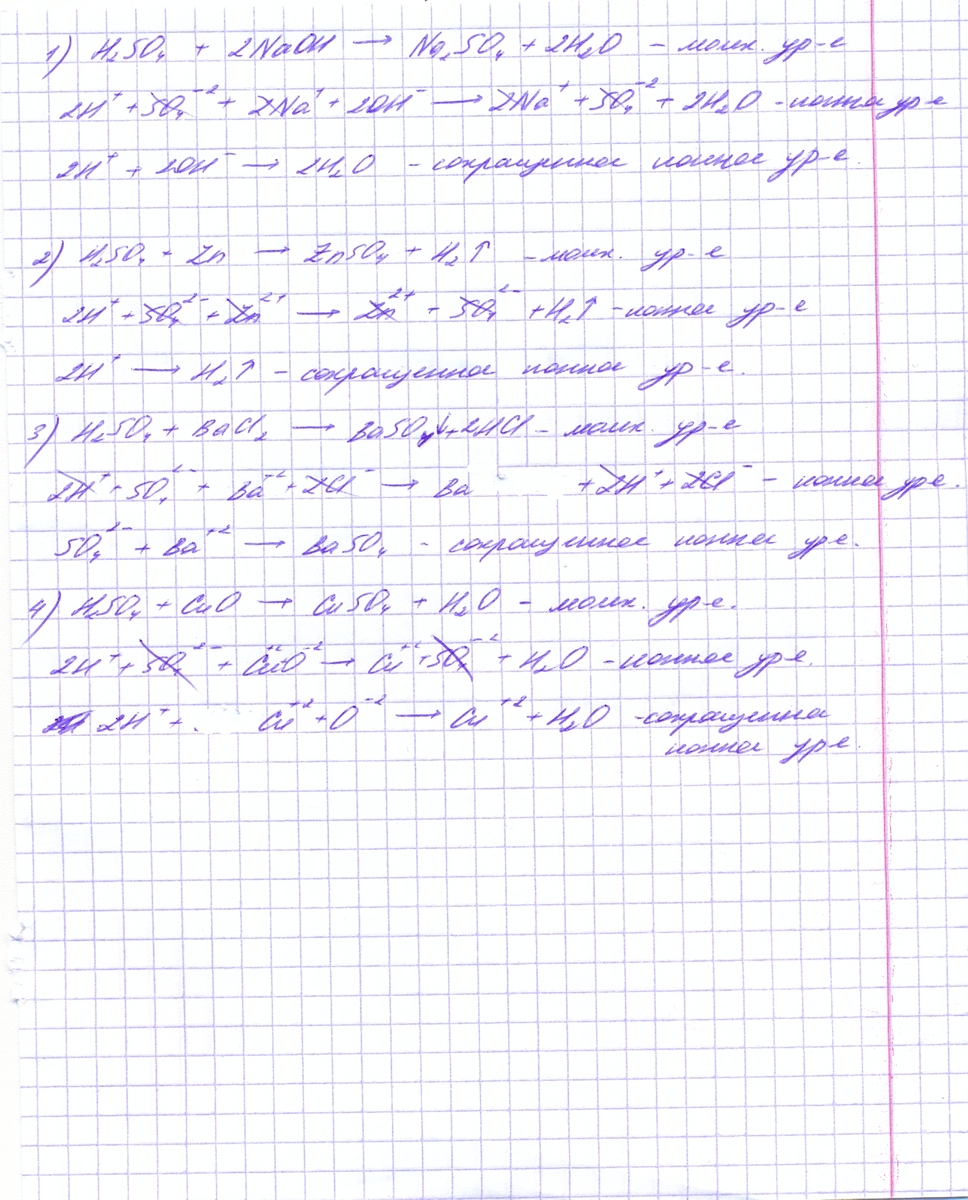 1) H₂SO₄ + 2NaOH → Na₂SO₄ + 2H₂O – молек. ур-е
2H⁺ + SO₄⁻² + 2Na⁺ + 2OH⁻ → 2Na⁺ + SO₄⁻² + 2H₂O - ионное ур-е
2H⁺ + 2OH⁻ → 2H₂O - сокращенное ионное ур-е.
2) H₂SO₄ + Zn → ZnSO₄ + H₂↑ - молек. ур-е
2H⁺ + SO₄²⁻ + Zn²⁺ → Zn²⁺ + SO₄²⁻ + H₂↑ - ионное ур-е
2H⁺ → H₂↑ - сокращенное ионное ур-е.
3) H₂SO₄ + BaCl₂ → BaSO₄↓ + 2HCl - молек. ур-е
2H⁺ + SO₄²⁻ + Ba⁺² + 2Cl⁻ → Ba + 2H⁺ + 2Cl⁻ - ионное ур-е.
SO₄²⁻ + Ba⁺² → BaSO₄ - сокращенное ионное ур-е.
4) H₂SO₄ + CuO → CuSO₄ + H₂O - молек. ур-е.
2H⁺ + SO₄²⁻ + Cu⁺²O⁻² → Cu⁺² + SO₄⁻² + H₂O - ионное ур-е.
2H⁺ + Cu⁺² + O⁻² → Cu⁺² + H₂O - сокращенное
ионное ур-е.